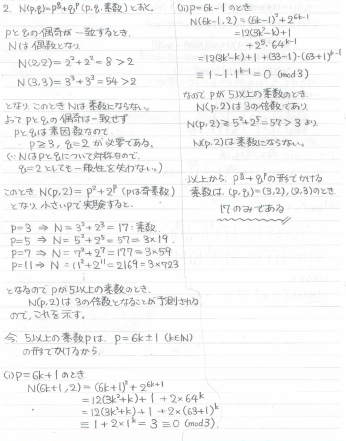 2. N(p,q)=p^q+q^p (p,q:素数)とおく。
pとqの偶奇が一致するとき、
Nは偶数となり
N(2,2)=2²+2²=8>2
N(3,3)=3³+3³=54>2
となり、このときNは素数にならない。
よってpとqの偶奇は一致せず
pとqは素因数なので、
p≧3, q=2 が必要である。
(∵Nはpとqについて対称なので、
q=2としても一般性を失わない。)
このとき N(p,2)=p²+2^p (pは奇素数)
となり、小さいpで実験すると、
p=3 ⇒ N=3²+2³=17:素数
p=5 ⇒ N=5²+2⁵=57=3×19
p=7 ⇒ N=7²+2⁷=177=3×59
p=11 ⇒ N=11²+2¹¹=2169=3×723
となるのでpが5以上の素数のとき、
N(p,2)は3の倍数となることが予測される
ので、これを示す。
今、5以上の素数pは、p=6k±1 (k∈N)
の形でかけるから、
(i) p=6k+1のとき
N(6k+1,2)=(6k+1)²+2^{6k+1}
=12(3k²+k)+1+2×64^k
=12(3k²+k)+1+2×(63+1)^k
≡1+2×1^k=3≡0 (mod3).
(ii) p=6k-1のとき
N(6k-1,2)=(6k-1)²+2^{6k-1}
=12(3k²-k)+1
+2⁵·64^{k-1}
=12(3k²-k)+1+(33-1)·(63+1)^{k-1}
≡1-1·1^{k-1}=0 (mod3)
なのでpが5以上の素数のとき、
N(p,2)は3の倍数であり
N(p,2)≧5²+2⁵=57>3より
N(p,2)は素数にならない。
以上から、p^q+q^pの形でかける
素数は、(p,q)=(3,2),(2,3)のとき
17のみである